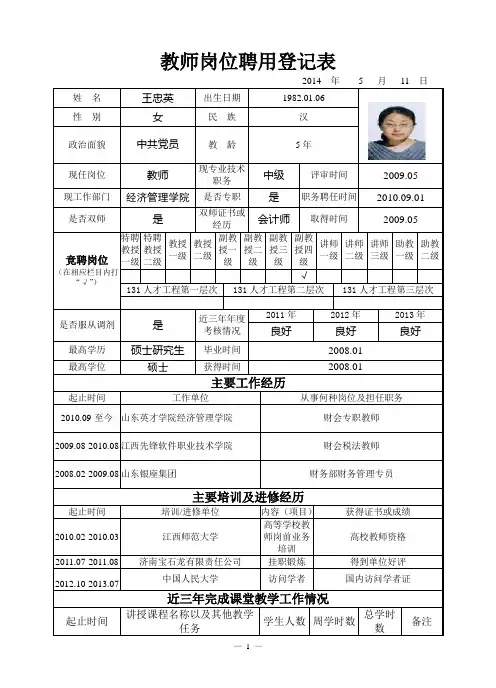 教师岗位聘用登记表
2014 年 5 月 11 日
姓 名 王忠英 出生日期 1982.01.06
性 别 女 民 族 汉
政治面貌 中共党员 教 龄 5年
现任岗位 教师 现专业技术职务 中级 评审时间 2009.05
现工作部门 经济管理学院 是否专职 是 职务聘任时间 2010.09.01
是否双师 是 双师证书或经历 会计师 取得时间 2009.05
竞聘岗位（在相应栏目内打“√”） 特聘教授一级 特聘教授二级 教授一级 教授二级 副教授一级 副教授二级 副教授三级 副教授四级 讲师一级 讲师二级 讲师三级 助教一级 助教二级
√
131人才工程第一层次 131人才工程第二层次 131人才工程第三层次
是否服从调剂 是 近三年年度考核情况 2011年 2012年 2013年
良好 良好 良好
最高学历 硕士研究生 毕业时间 2008.01
最高学位 硕士 获得时间 2008.01
主要工作经历
起止时间 工作单位 从事何种岗位及担任职务
2010.09至今 山东英才学院经济管理学院 财会专职教师
2009.08-2010.08 江西先锋软件职业技术学院 财会税法教师
2008.02-2009.08 山东银座集团 财务部财务管理专员
主要培训及进修经历
起止时间 培训/进修单位 内容（项目） 获得证书或成绩
2010.02-2010.03 江西师范大学 高等学校教师岗前业务培训 高校教师资格
2011.07-2011.08 济南宝石龙有限责任公司 挂职锻炼 得到单位好评
2012.10-2013.07 中国人民大学 访问学者 国内访问学者证
近三年完成课堂教学工作情况
起止时间 讲授课程名称以及其他教学任务 学生人数 周学时数 总学时数 备注
— 1 —